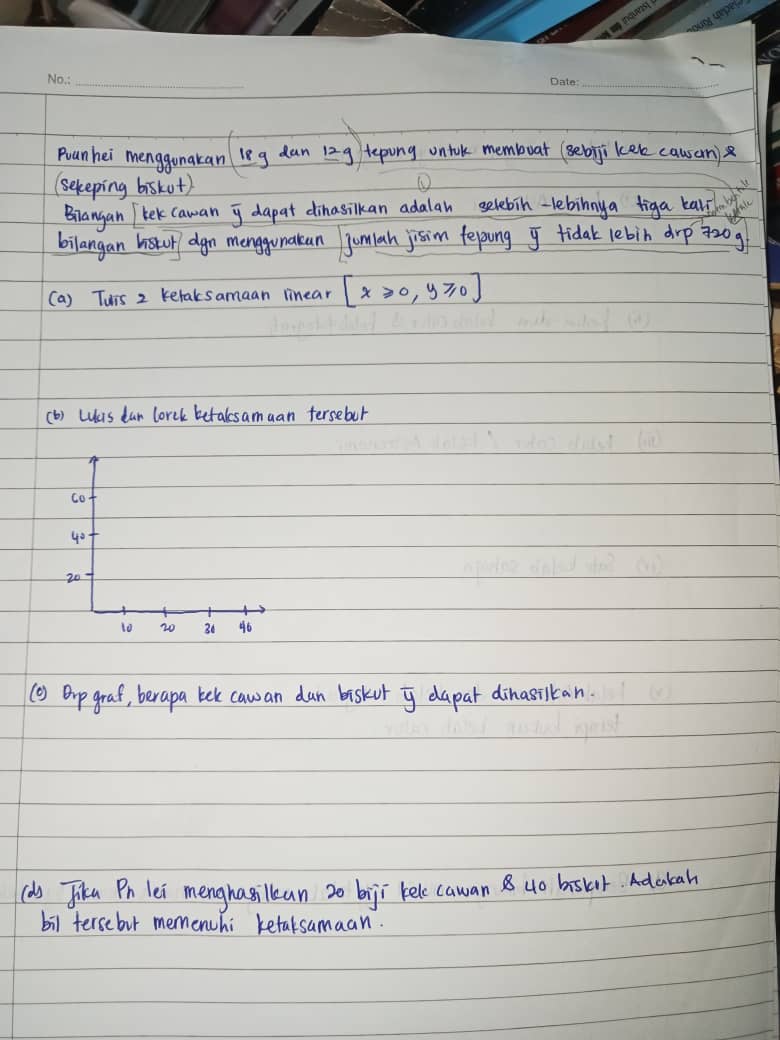 No.:
Date:
Puan hei menggunakan (18 g dan 12 g) tepung untuk membuat (sebiji kek cawan) &
(sekeping biskut).
①
Bilangan [kek cawan ȳ dapat dihasilkan adalah selebih-lebihnya tiga kali
bilangan biskut] dgn menggunakan [jumlah jisim tepung ȳ tidak lebih drp 720 g]
(a) Tulis 2 ketaksamaan linear [x ≥ 0, y ≥ 0]
(b) Lukis dan lorek ketaksamaan tersebut
60
40
20
10 20 30 40
(c) Drp graf, berapa kek cawan dan biskut ȳ dapat dihasilkan.
(d) Jika Pn lei menghasilkan 20 biji kek cawan & 40 biskut. Adakah
bil tersebut memenuhi ketaksamaan.